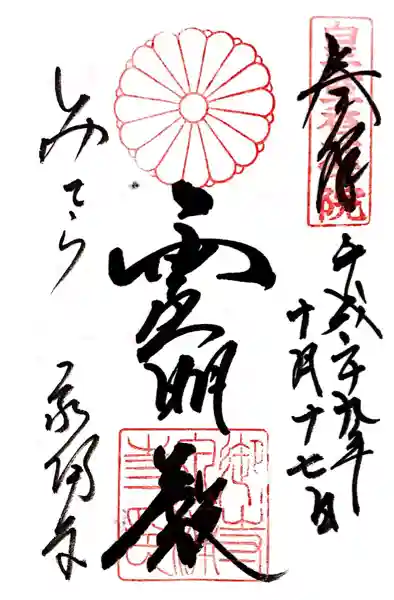 奉拝
皇室香華院
平成二十九年
十月十七日
霊明殿
みてら 泉涌寺